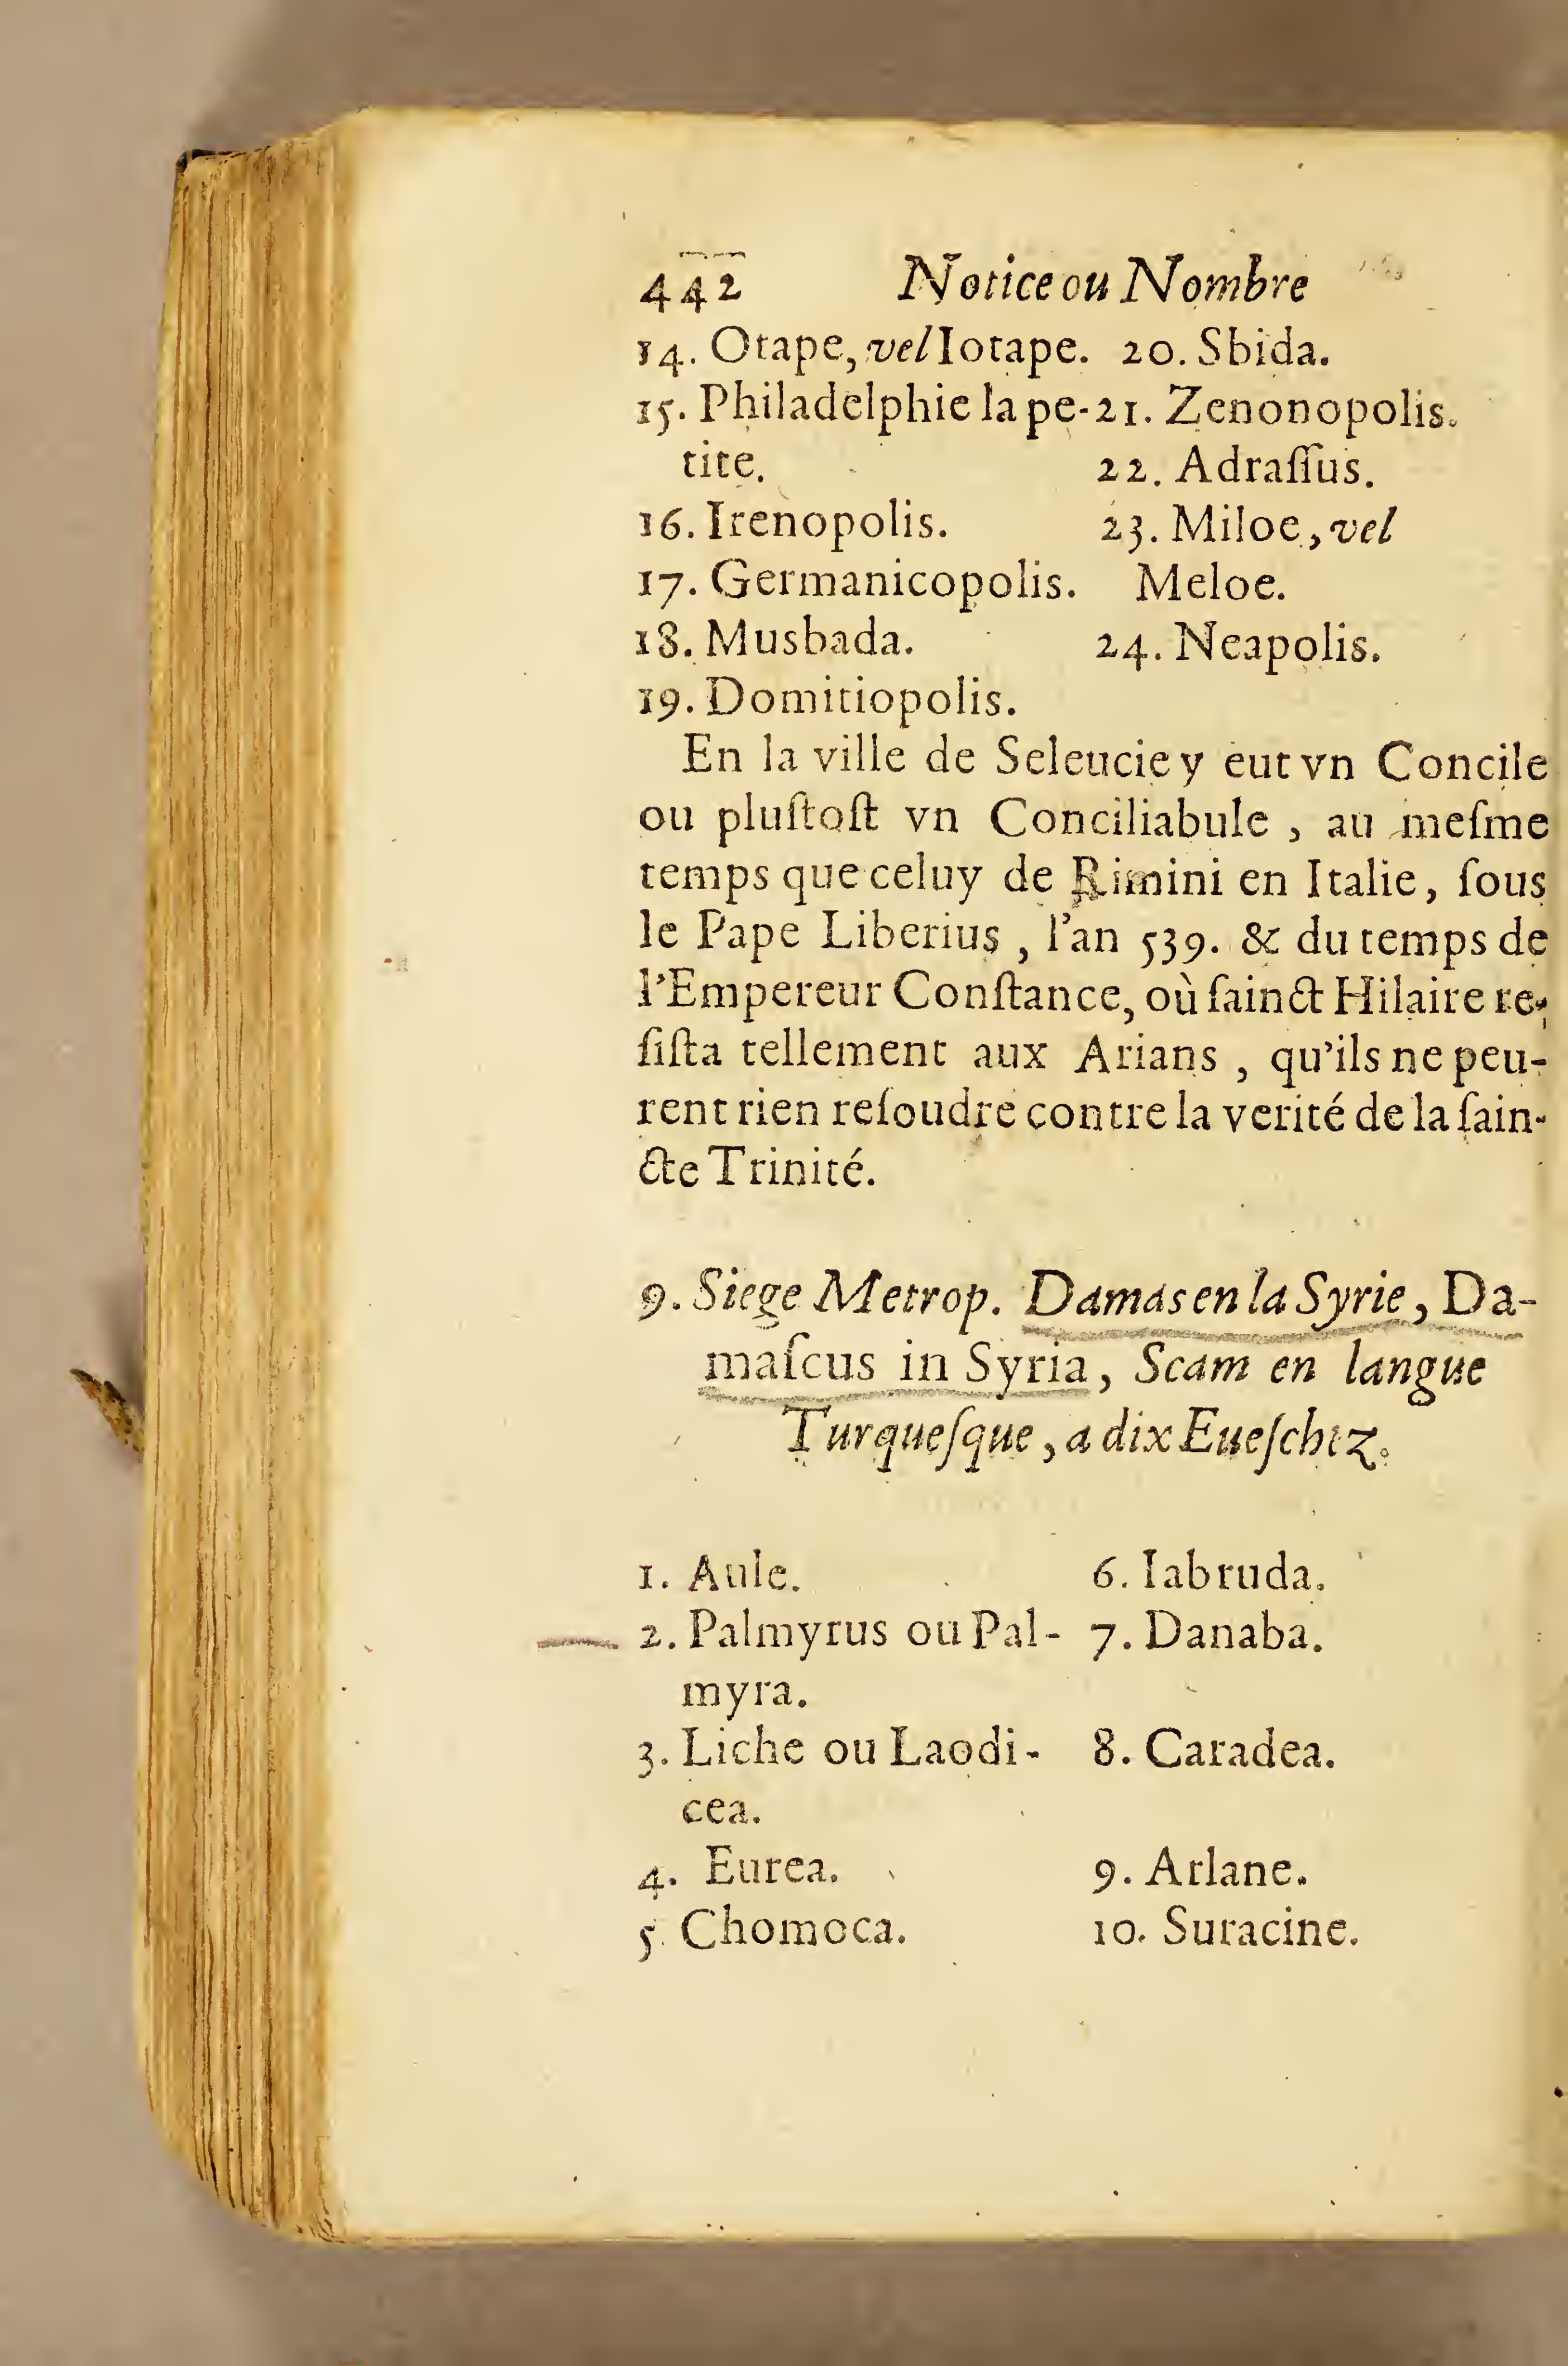 442 Notice ou Nombre
14. Otape, vel Iotape. 20. Sbida.
15. Philadelphie la pe- 21. Zenonopolis.
tite. 22. Adraſſus.
16. Irenopolis. 23. Miloe, vel
17. Germanicopolis. Meloe.
18. Musbada. 24. Neapolis.
19. Domitiopolis.
En la ville de Seleucie y eut vn Concile
ou pluſtoſt vn Conciliabule , au meſme
temps que celuy de Rimini en Italie, ſous
le Pape Liberius , l'an 539. & du temps de
l'Empereur Conſtance, où ſainct Hilaire re-
ſiſta tellement aux Arians , qu'ils ne peu-
rent rien reſoudre contre la verité de la ſain-
cte Trinité.
9. Siege Metrop. Damas en la Syrie, Da-
maſcus in Syria, Scam en langue
Turqueſque, a dix Eueſchez.
1. Aule. 6. Iabruda.
2. Palmyrus ou Pal- 7. Danaba.
myra.
3. Liche ou Laodi- 8. Caradea.
cea.
4. Eurea. 9. Arlane.
5. Chomoca. 10. Suracine.